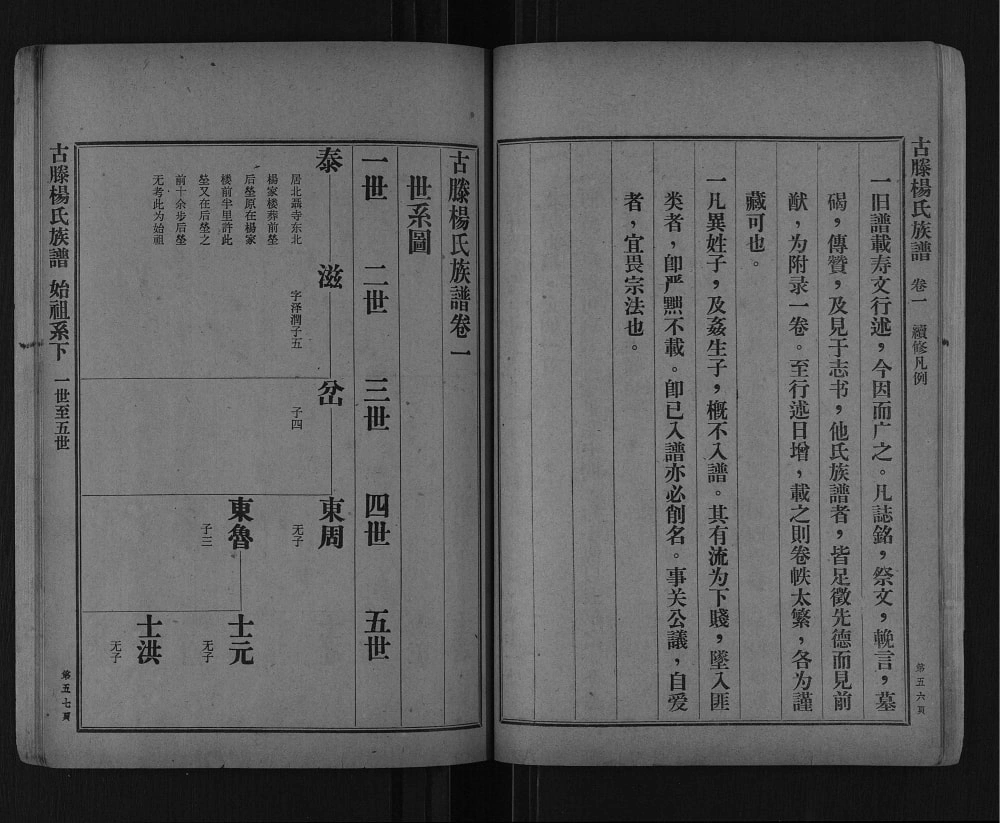 古滕楊氏族譜 卷一 續修凡例
一旧譜載寿文行述，今因而广之。凡誌銘，祭文，輓言，墓
碣，傳贊，及見于志书，他氏族譜者，皆足徵先德而見前
猷，为附录一卷。至行述日增，載之則卷帙太繁，各为謹
藏可也。
一凡異姓子，及姦生子，概不入譜。其有流为下賤，墜入匪
类者，卽严黜不載。卽已入譜亦必削名。事关公議，自爱
者，宜畏宗法也。
第五六頁
古滕楊氏族譜卷一
世系圖
一世 二世 三世 四世 五世
泰
居北聶寺东北
楊家楼葬前塋
后塋原在楊家
楼前半里許此
塋又在后塋之
前十余步后塋
无考此为始祖
滋
字泽潤子五
岔
子四
東周
无子
東魯
子三
士元
无子
士洪
无子
古滕楊氏族譜 始祖系下 一世至五世
第五七頁